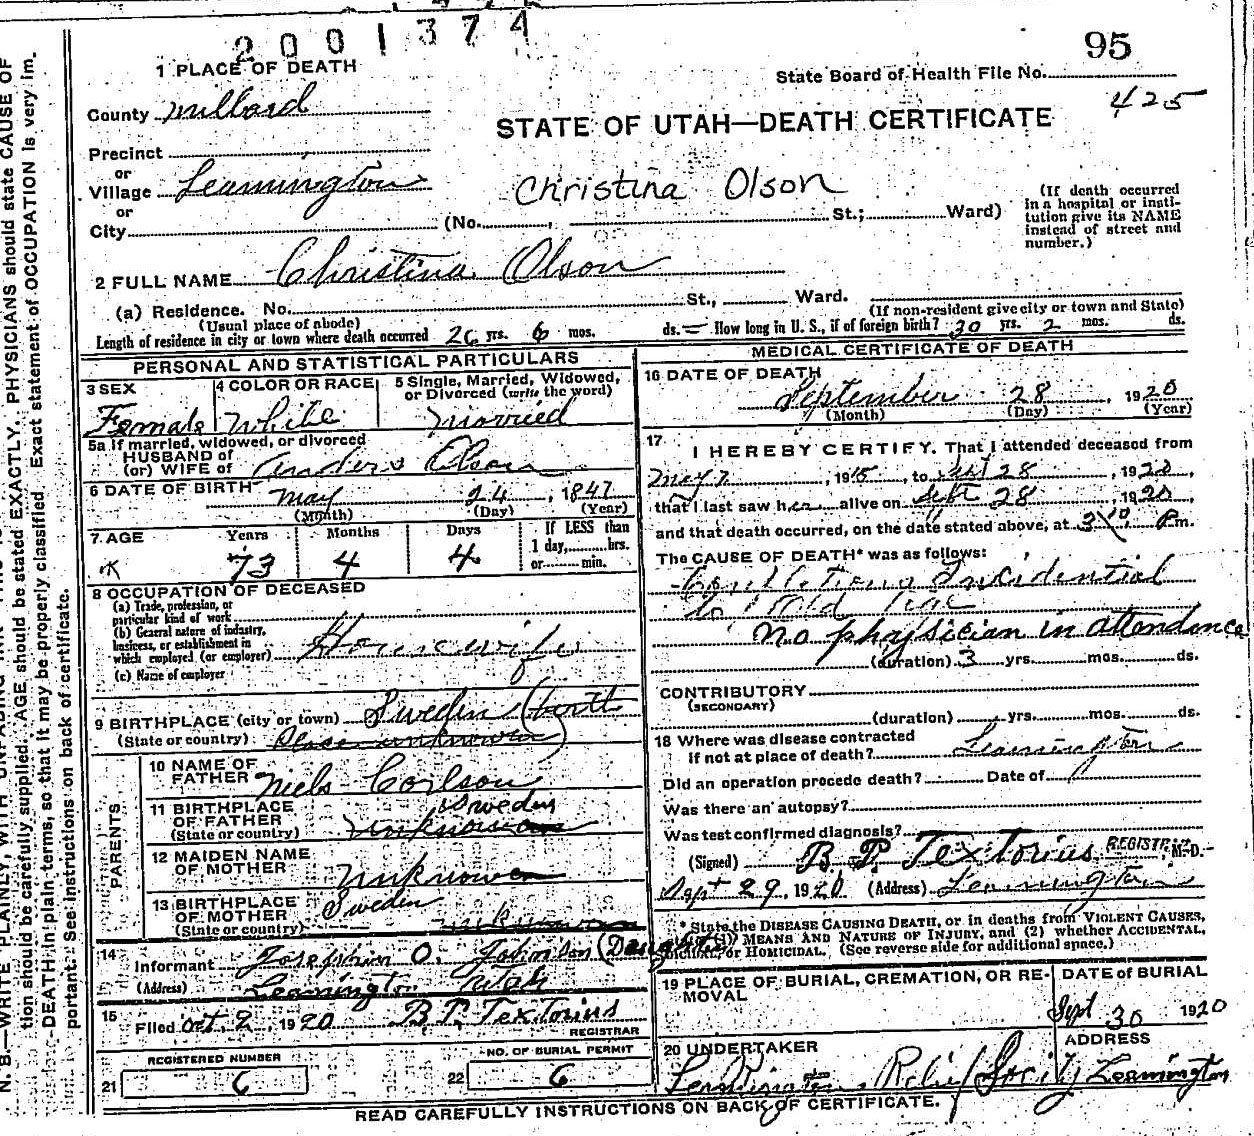 2001374
95
1 PLACE OF DEATH
State Board of Health File No.
425
County Millard
STATE OF UTAH—DEATH CERTIFICATE
Precinct
or
Village Leamington
Christina Olson
or
City (No. , St.; Ward)
(If death occurred in a hospital or institution give its NAME instead of street and number.)
2 FULL NAME Christina Olson
(a) Residence. No. St., Ward.
(Usual place of abode)
(If non-resident give city or town and State)
Length of residence in city or town where death occurred 26 yrs. 6 mos. ds. How long in U. S., if of foreign birth? 30 yrs. 2 mos. ds.
PERSONAL AND STATISTICAL PARTICULARS
3 SEX Female
4 COLOR OR RACE White
5 Single, Married, Widowed, or Divorced (write the word) Married
5a If married, widowed, or divorced
HUSBAND of
(or) WIFE of Anders Olson
6 DATE OF BIRTH May 24, 1847
(Month) (Day) (Year)
7 AGE Years 73 Months 4 Days 4
If LESS than 1 day, hrs. or min.
8 OCCUPATION OF DECEASED
(a) Trade, profession, or particular kind of work
(b) General nature of industry, business, or establishment in which employed (or employer) Housewife
(c) Name of employer
9 BIRTHPLACE (city or town) Sweden (birth
(State or country) place unknown)
PARENTS
10 NAME OF FATHER Niels
11 BIRTHPLACE OF FATHER Sweden
(State or country) Unknown
12 MAIDEN NAME OF MOTHER Unknown
13 BIRTHPLACE OF MOTHER Sweden
(State or country) unknown
14 Informant Josephin O. Johnson (Daughter)
(Address) Leamington Utah
15 Filed Oct. 2, 1920 B. P. Textorius
REGISTRAR
REGISTERED NUMBER
21 6
NO. OF BURIAL PERMIT
22 6
MEDICAL CERTIFICATE OF DEATH
16 DATE OF DEATH
September 28, 1920
(Month) (Day) (Year)
17 I HEREBY CERTIFY, That I attended deceased from
1915, to Sept 28, 1920,
that I last saw her alive on Sept 28, 1920
and that death occurred, on the date stated above, at P m.
The CAUSE OF DEATH* was as follows:
Incidential
to Old Age
No physician in attendence
(duration) 3 yrs. mos. ds.
CONTRIBUTORY
(SECONDARY)
(duration) yrs. mos. ds.
18 Where was disease contracted
if not at place of death? Leamington
Did an operation precede death? Date of
Was there an autopsy?
Was test confirmed diagnosis?
(Signed) B. P. Textorius REGISTRAR M.D.
Sept 29, 1920 (Address) Leamington
* State the DISEASE CAUSING DEATH, or in deaths from VIOLENT CAUSES, state (1) MEANS AND NATURE OF INJURY, and (2) whether ACCIDENTAL, SUICIDAL, or HOMICIDAL. (See reverse side for additional space.)
19 PLACE OF BURIAL, CREMATION, OR REMOVAL
DATE of BURIAL
Sept 30 1920
20 UNDERTAKER
Leamington Relief Society
ADDRESS
Leamington
READ CAREFULLY INSTRUCTIONS ON BACK OF CERTIFICATE.
N. B.—WRITE PLAINLY, WITH UNFADING INK
tion should be carefully supplied. AGE should be stated EXACTLY. PHYSICIANS should state CAUSE OF
DEATH in plain terms, so that it may be properly classified. Exact statement of OCCUPATION is very im-
portant. See instructions on back of certificate.